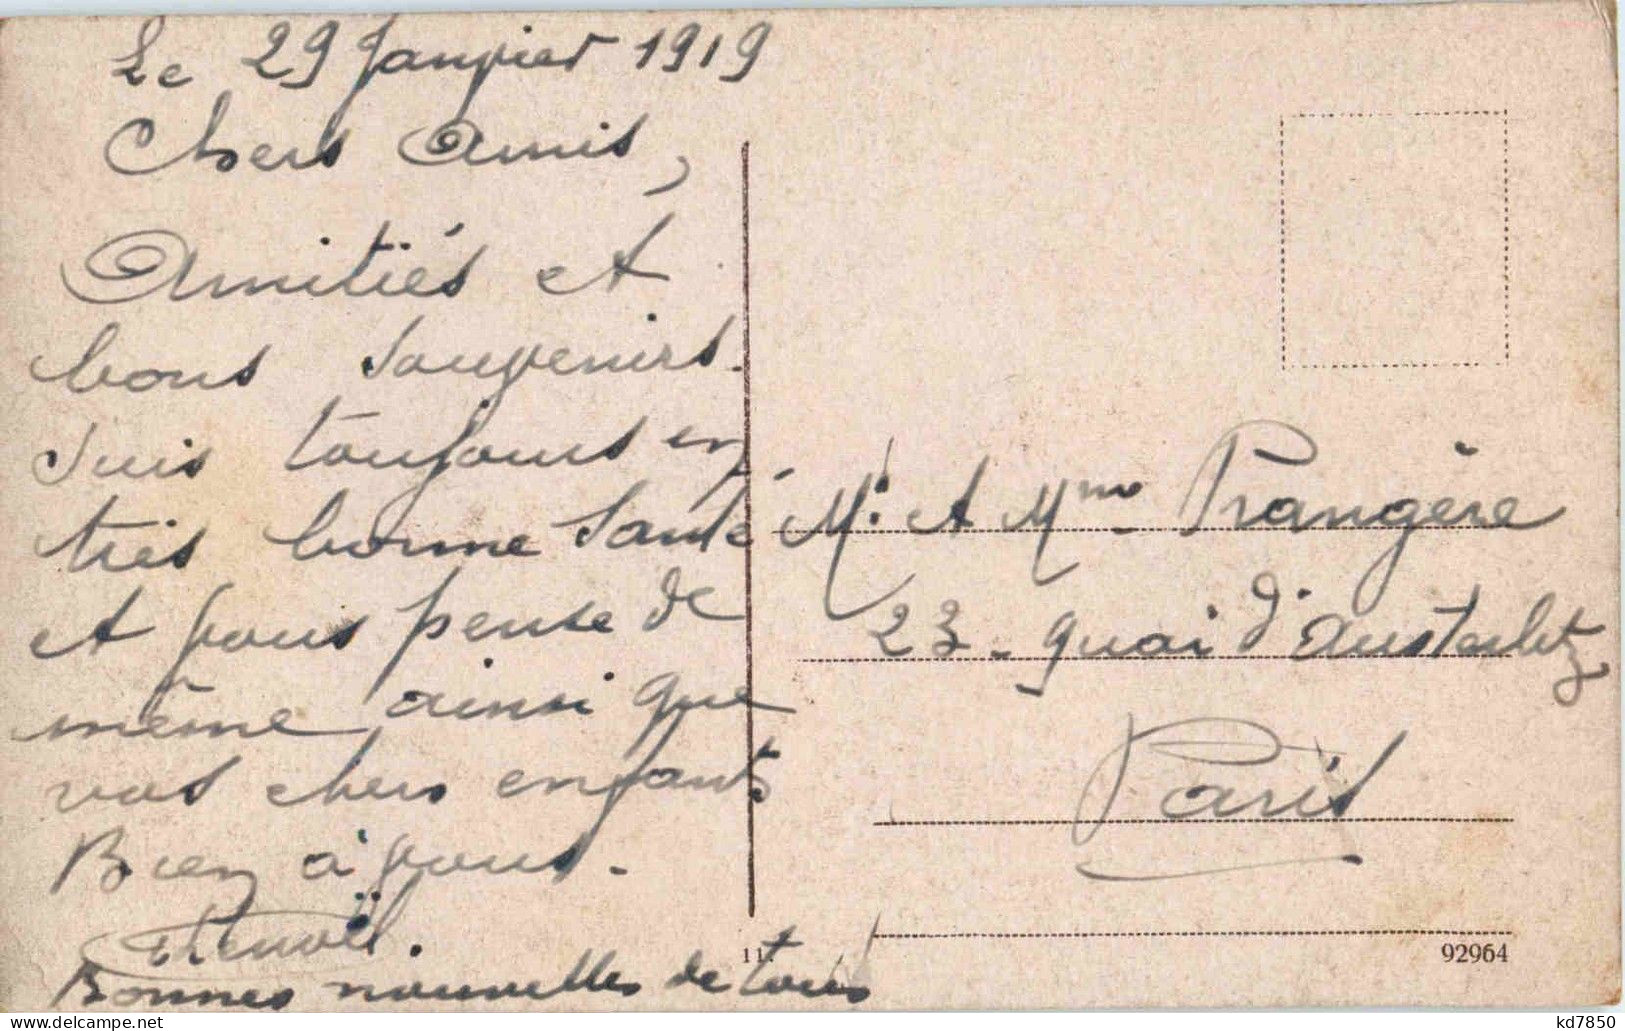 Le 29 Janvier 1919
Chers Amis,
Amitiés et
bons souvenirs.
Suis toujours en
très bonne santé
et vous pense de
même ainsi que
vos chers enfants
Bien à vous.
Bonnes nouvelles de tous
Mr. et Mme Prangère
23 - quai d'Austerlitz
Paris
11.
92964
www.delcampe.net
kd7850